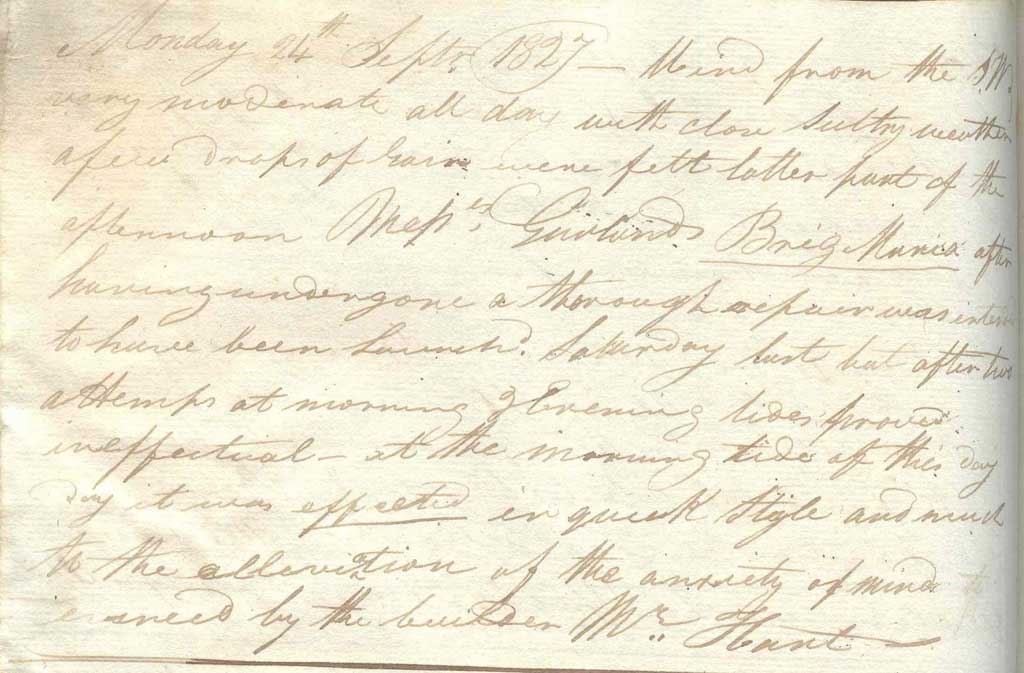 Monday 24th Septr. 1827 — Wind from the S.W
very moderate all day with close sultry weather
a few drops of rain were felt latter part of the
afternoon Messrs Garlands Brig Maria after
having undergone a thorough repair was
to have been launchd. Saturday last but after two
attemps at morning & Evening tides proved
ineffectual – at the morning tide of this day
day it was effected in quick style and much
to the alleviation of the anxiety of mind
by the builder Mr. Hart —